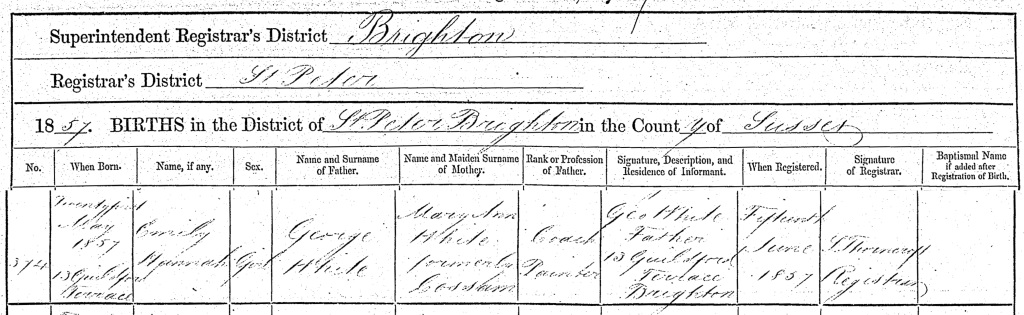 Superintendent Registrar's District Brighton
Registrar's District St Peter
1857. BIRTHS in the District of St. Peter Brighton in the County of Sussex
No. When Born. Name, if any. Sex. Name and Surname of Father. Name and Maiden Surname of Mother. Rank or Profession of Father. Signature, Description, and Residence of Informant. When Registered. Signature of Registrar. Baptismal Name if added after Registration of Birth.
374
Twentyfirst
May
1857
13 Guildford
Terrace
Emily
Hannah
Girl
George
White
Mary Ann
White
formerly
Cossham
Coach
Painter
Geo White
Father
13 Guildford
Terrace
Brighton
Fifteenth
June
1857
S. Thorncroft
Registrar